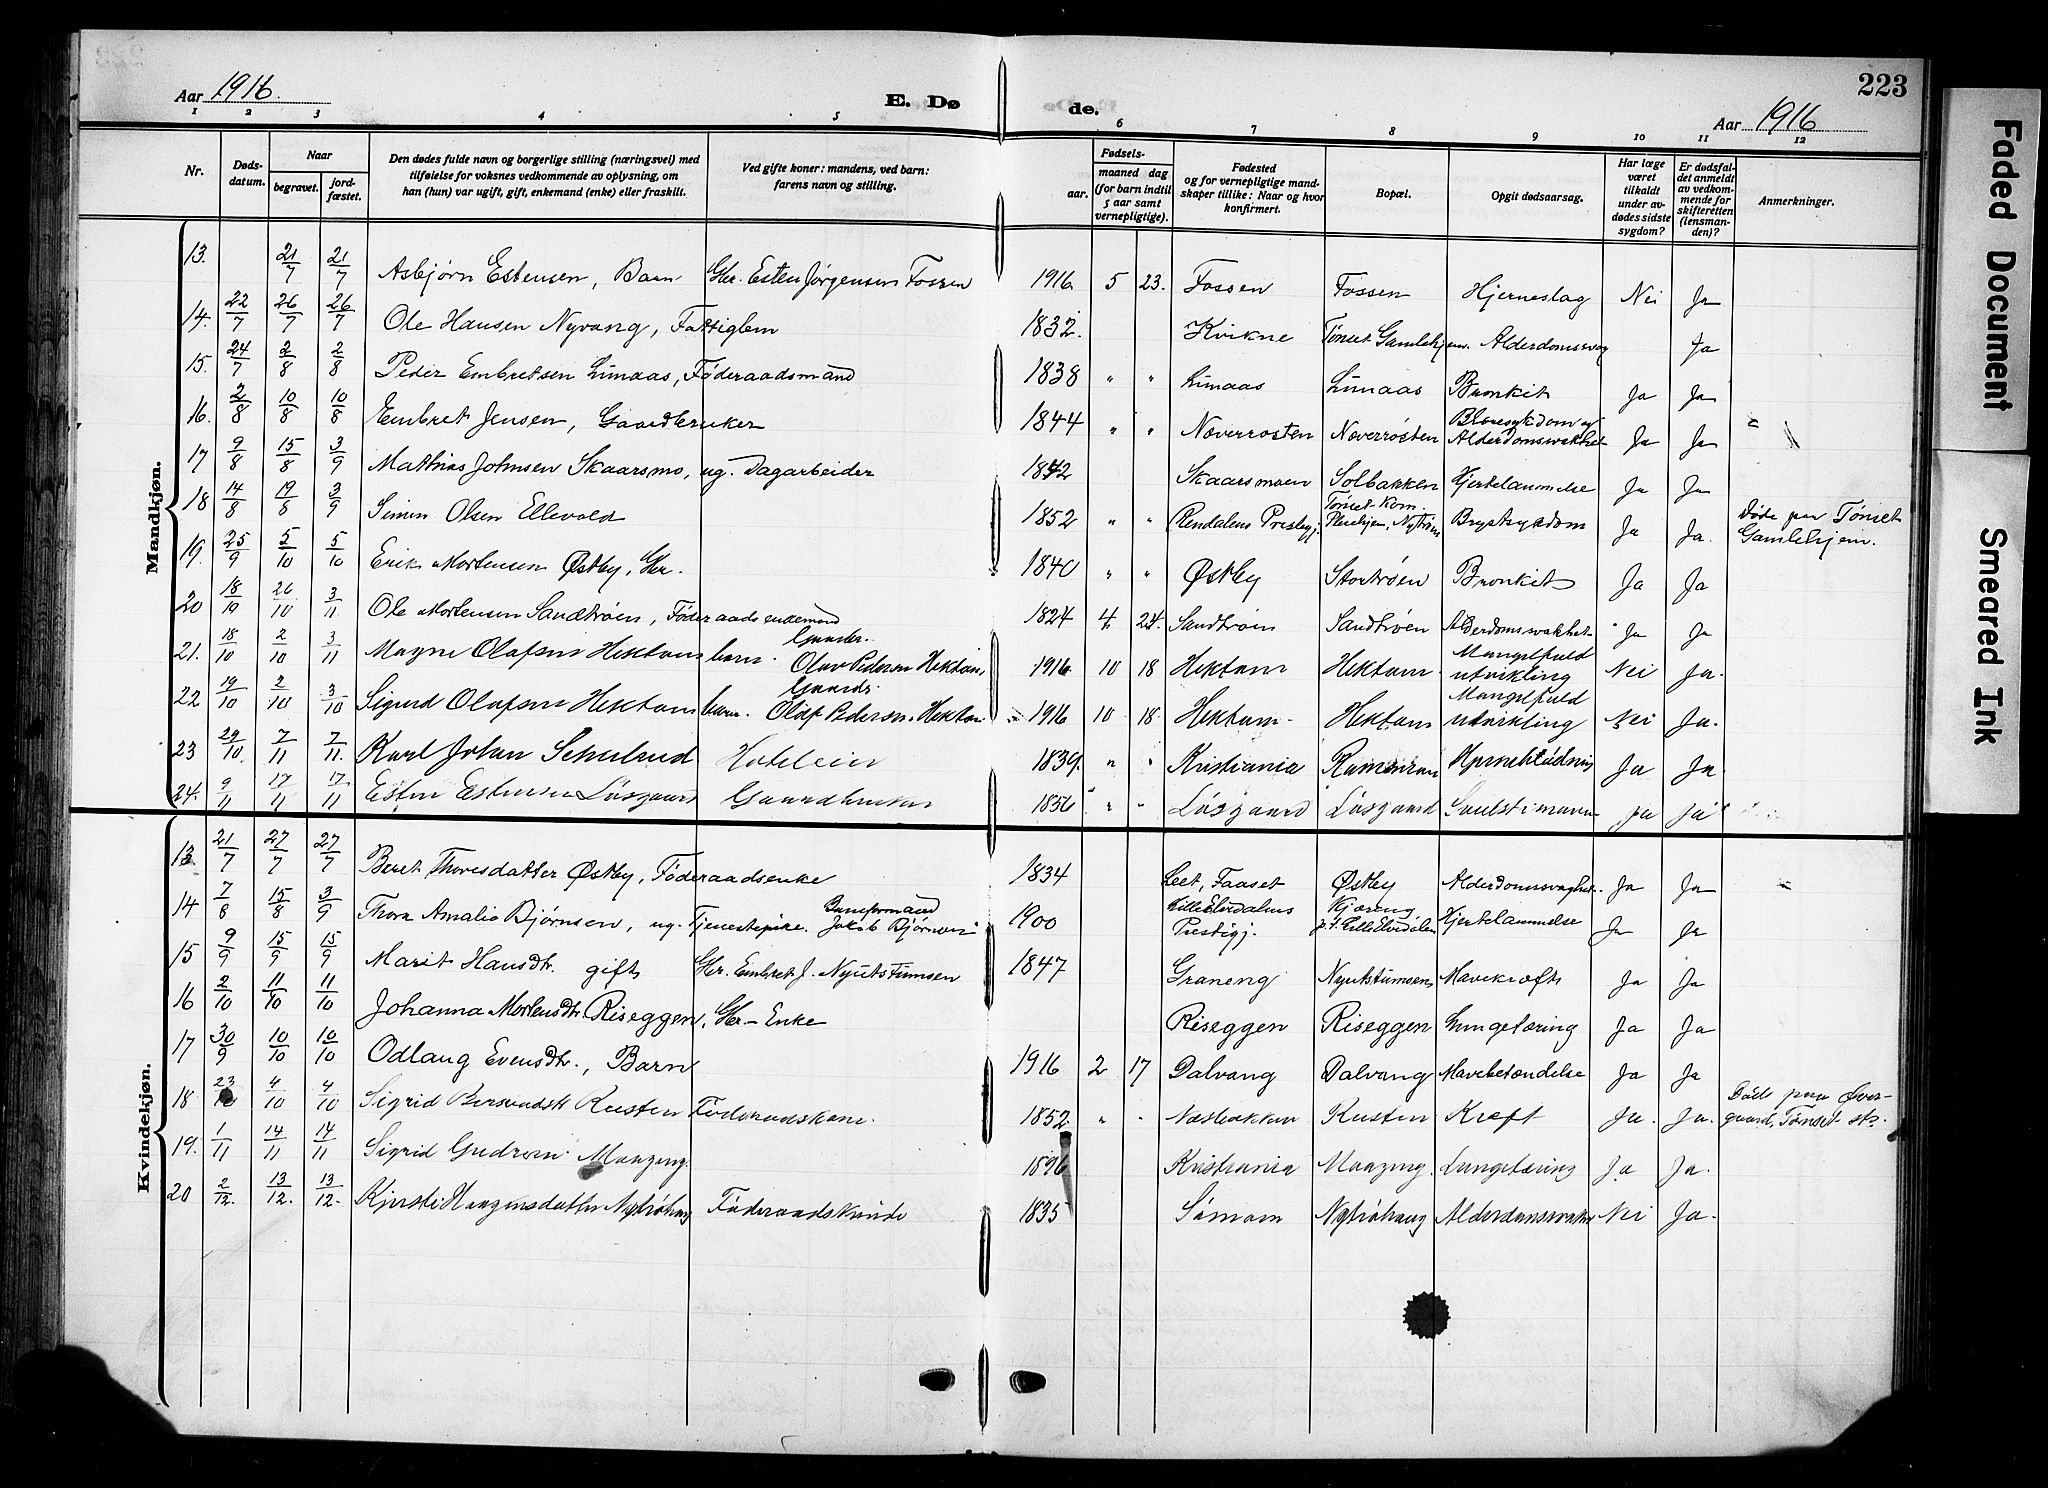 223
Aar 1916.
E. Dø
de.
Aar 1916
1 2 3 4 5 6 7 8 9 10 11 12
Nr.
Døds-
datum.
Naar
begravet.
jord-
fæstet.
Den dødes fulde navn og borgerlige stilling (næringsvei) med
tilføielse for voksnes vedkommende av oplysning, om
han (hun) var ugift, gift, enkemand (enke) eller fraskilt.
Ved gifte koner: mandens, ved barn:
farens navn og stilling.
Fødsels-
aar.
maaned dag
(for barn indtil
5 aar samt
vernepligtige).
Fødested
og for vernepligtige mand-
skaper tillike: Naar og hvor
konfirmert.
Bopæl.
Opgit dødsaarsag.
Har læge
været
tilkaldt
under av-
dødes sidste
sygdom?
Er dødsfal-
det anmeldt
av vedkom-
mende for
skifteretten
(lensman-
den)?
Anmerkninger.
Mandkjøn.
13. 21/7 21/7 Asbjørn Estensen, Barn Gbr. Esten Jørgensen Fossen 1916 5 23. Fossen Fossen Hjerneslag Nei Ja
14. 22/7 26/7 26/7 Ole Hansen Nyvang, Fattiglem 1832. Kvikne Tønset Gamlehjem. Ja
15. 24/7 2/8 2/8 Peder Embretsen Lunaas, Føderaadsmand 1838 " " Lunaas Lunaas Bronkit Ja Ja
16. 2/8 10/8 10/8 Embret Jensen, Gaardbruker 1844 " " Næverrosten Næverrosten Blæresykdom og Alderdomssvakhet Ja Ja
17 9/8 15/8 3/9 Mathias Johnsen Skaarsmo, ug. Dagarbeider Skaarsmoen Solbakken Hjertelammelse Ja Ja
18 14/8 19/8 3/9 Simen Olsen Ellevold 1852 " " Rendalens Prestgj. Tønset Kom. Pleiehjem, Nytrøen Brystsykdom Ja Ja. Døde paa Tønset
Gamlehjem.
19. 25/9 5/10 5/10 Erik Mortensen Østby, Gbr. 1840 " " Østby Stortrøen Bronkit Ja Ja
20 18/10 26/10 3/11. Ole Mortensen Sandtrøen, Føderaadsenkemand 1824 4 24. Sandtrøen Sandtrøen Alderdomssvakhet Ja Ja
21. 18/10 2/10 3/11 Magne Olafsen Hektoen barn. Gaardbr. Olav Pedersen Hektoen, 1916 10 18 Hektoen Hektoen Mangelfuld utvikling Nei Ja.
22 19/10 2/10 3/10 Sigurd Olafsen Hektoen barn. Gaardbr. Olaf Pedersen Hektoen 1916 10 18. Hektoen Hektoen Mangelfuld utvikling Nei Ja.
23 29/10. 7/11 7/11. Karl Johan Schulrud Hoteleier 1839. " " Kristiania Ramsmoen Hjerneblødning Ja Ja.
24. 9/11 17/11 17/11 Esten Estensen Løsgaard Gaardbruker 1856 " " Løsgaard Løsgaard Ja Ja
Kvindekjøn.
13. 21/7 27/7 27/7 Beret Thoresdatter Østby, Føderaadsenke 1834 Leet, Faaset Østby Alderdomssvaghet. Ja Ja
14 7/8 15/8 3/9 Thora Amalie Bjørnsen, ug. Tjenestepike. Baneformand Jakob Bjørnsen 1900 Lille Elvdalens Prestgj. Kjæreng p.t. Lille Elvedalen Hjertelammelse Ja Ja
15 9/9 15/9 15/9 Marit Hansdtr. gift Gbr. Embret J. Nyutstumsen 1847 Graneng Nyutstumsen Mavekræft Ja Ja
16 2/10 11/10 11/10 Johanna Mortensdtr. Riseggen, Gbr-Enke Riseggen Riseggen Lungetæring Ja Ja
17 30/9 10/10 10/10 Odlaug Evensdtr., Barn 1916 2 17 Dalvang Dalvang Mavebetændelse Ja Ja
18 23/10 4/10 4/10 Sigrid Bersvendsdt. Rusten Føderaadskone. 1852 " " Næsbakken Rusten Kreft Ja. Ja. Døde paa Øver-
gaard, Tønset st.
19. 1/11 14/11 14/11 Sigrid Gudrun Moazeng. 1896 Kristiania Moazeng. Lungetæring Ja Ja.
20 2/12. 13/12. 13/12. Kjersti Haagensdatter Nytrøhaug Føderaadskvinde 1835 Sømoen Nytrøhaug Alderdomssvakhet Nei Ja.
Faded Document
Smeared Ink